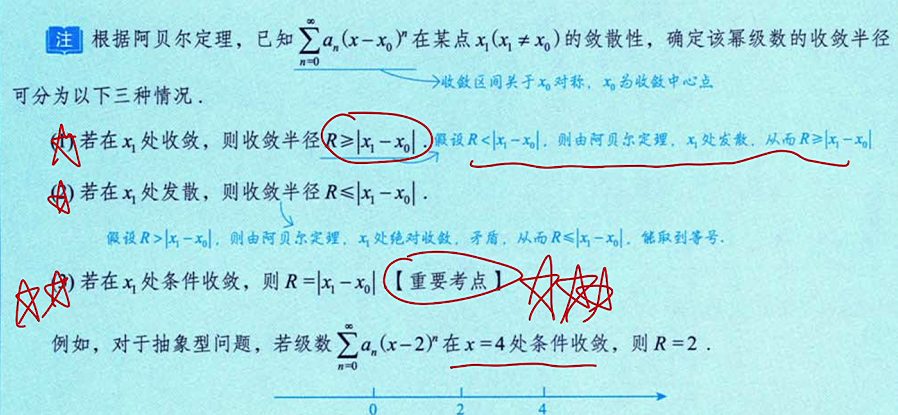 注 根据阿贝尔定理，已知∑_{n=0}^{∞} aₙ(x−x₀)ⁿ在某点x₁(x₁≠x₀)的敛散性，确定该幂级数的收敛半径
收敛区间关于x₀对称，x₀为收敛中心点
可分为以下三种情况．
(1) 若在x₁处收敛，则收敛半径R≥|x₁−x₀|．假设R<|x₁−x₀|，则由阿贝尔定理，x₁处发散，从而R≥|x₁−x₀|
(2) 若在x₁处发散，则收敛半径R≤|x₁−x₀|．
假设R>|x₁−x₀|，则由阿贝尔定理，x₁处绝对收敛，矛盾，从而R≤|x₁−x₀|，能取到等号．
(3) 若在x₁处条件收敛，则R=|x₁−x₀|【重要考点】
例如，对于抽象型问题，若级数∑_{n=0}^{∞} aₙ(x−2)ⁿ在x=4处条件收敛，则R=2．
0 2 4